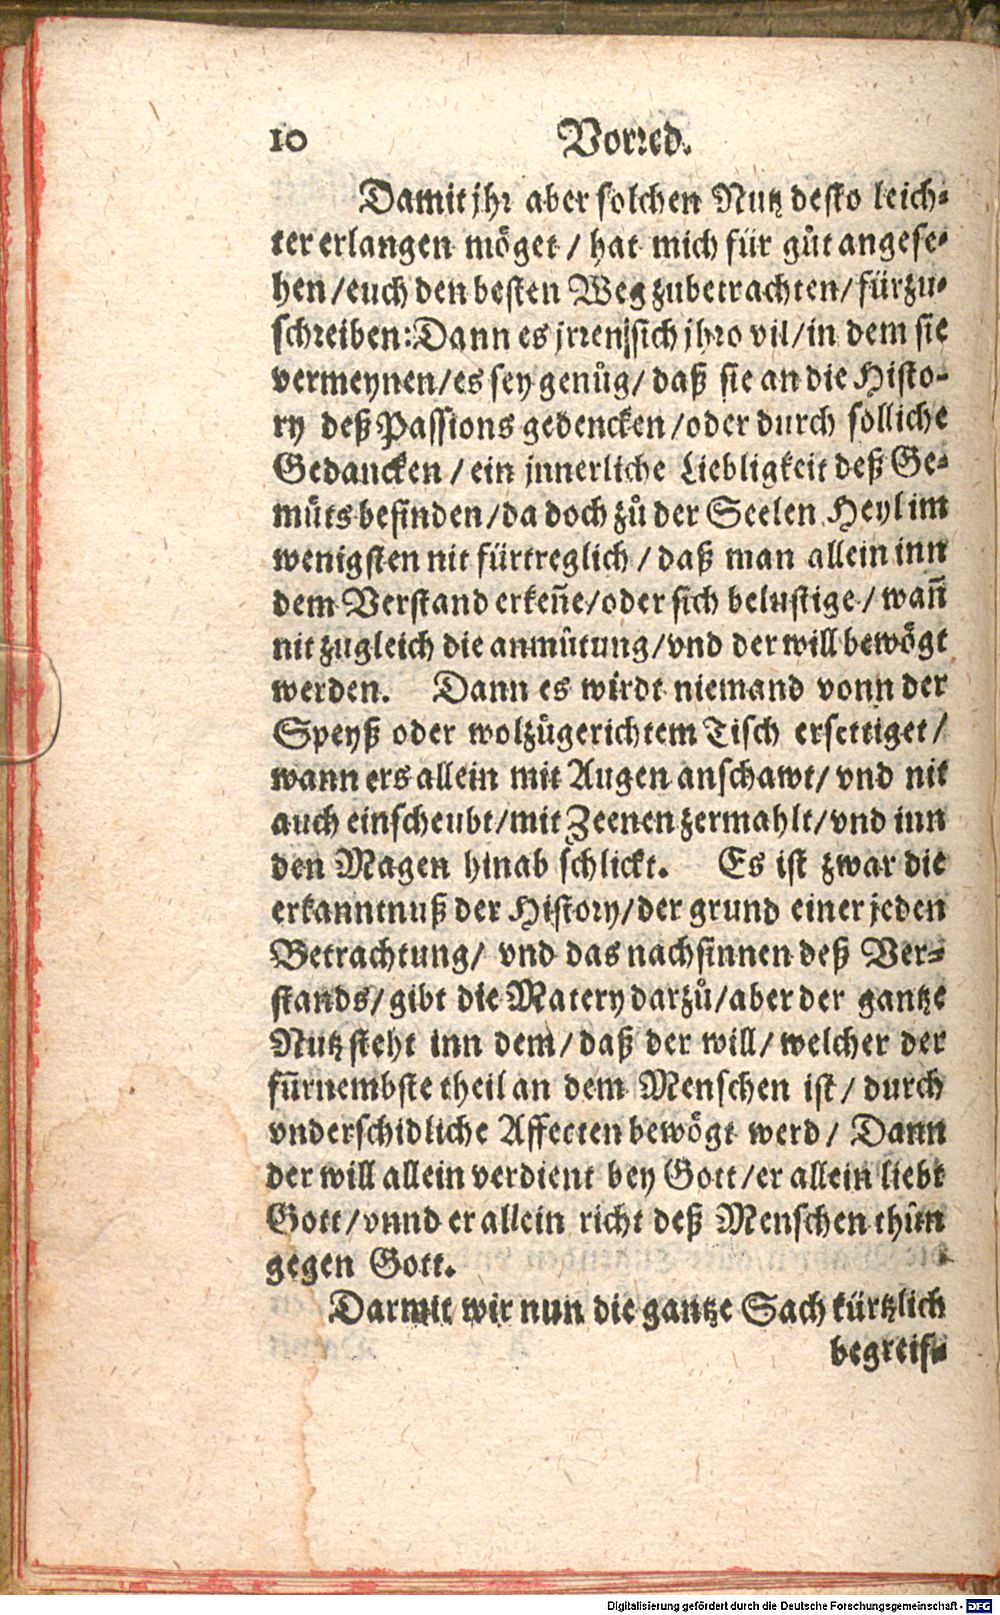 10 Vorred.
Damit jhr aber solchen Nutz desto leich-
ter erlangen möget / hat mich für gůt angese-
hen / euch den besten Weg zubetrachten / fürzu-
schreiben: Dann es jrren sich jhro vil / in dem sie
vermeynen / es sey genůg / daß sie an die Histo-
ry deß Passions gedencken / oder durch solliche
Gedancken / ein jnnerliche Liebligkeit deß Ge-
müts befinden / da doch zů der Seelen Heyl im
wenigsten nit fürtreglich / daß man allein inn
dem Verstand erkeñe / oder sich belustige / wañ
nit zugleich die anmůtung / vnd der will bewögt
werden. Dann es wirdt niemand vonn der
Speyß oder wolzůgerichtem Tisch ersettiget /
wann ers allein mit Augen anschawt / vnd nit
auch einscheubt / mit Zeenen zermahlt / vnd inn
den Magen hinab schlickt. Es ist zwar die
erkanntnuß der History / der grund einer jeden
Betrachtung / vnd das nachsinnen deß Ver-
stands / gibt die Matery darzů / aber der gantze
Nutz steht inn dem / daß der will / welcher der
fürnembste theil an dem Menschen ist / durch
vnderschidliche Affecten bewögt werd / Dann
der will allein verdient bey Gott / er allein liebt
Gott / vnnd er allein richt deß Menschen thůn
gegen Gott.
Darmit wir nun die gantze Sach kürtzlich
begreif-
Digitalisierung gefördert durch die Deutsche Forschungsgemeinschaft - DFG